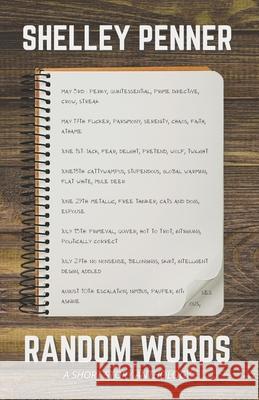 SHELLEY PENNER
MAY 3RD : PERKY, QUINTESSENTIAL, PRIME DIRECTIVE,
CROW, STREAK
MAY 17TH PUCKER, PARSIMONY, SERENITY, CHAOS, FAITH,
ATHAME
JUNE 1ST: JACK, FEAR, DELIGHT, PRETEND, WOLF, TWILIGHT
JUNE15TH CATTYWAMPUS, STUPENDOUS, GLOBAL WARMING,
FLAT WHITE, MULE DEER
JUNE 29TH METALLIC, FREE TANKER, CATS AND DOGS,
ESPOUSE
JULY 13TH PRIMEVAL, QUIVER, HOT TO TROT, INTRIGUING,
POLITICALLY CORRECT
JULY 27TH NO NONSENSE, BELONGINGS, SKIRT, INTELLIGENT
DESIGN, ADDLED
AUGUST 10TH ESCALATION, NIMBUS, PAUPER,
ASKANCE
RANDOM WORDS
A SHORT STORY ANTHOLOGY